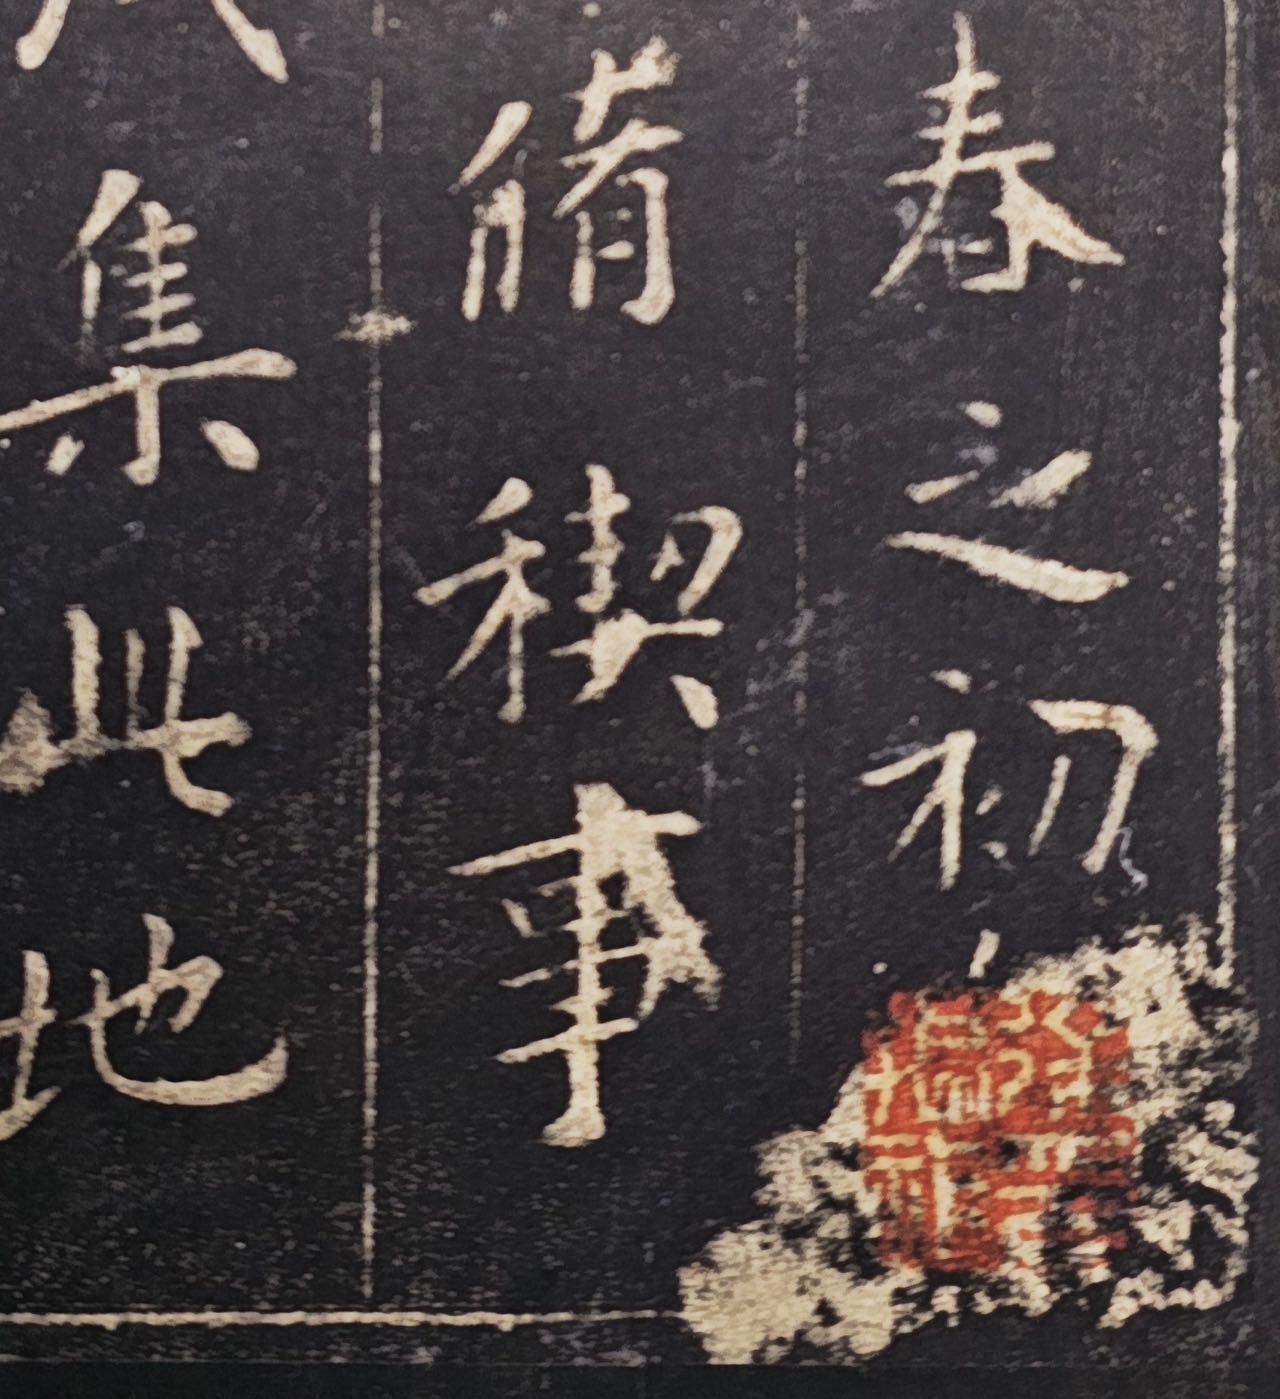 春之初
脩稧事
集此地